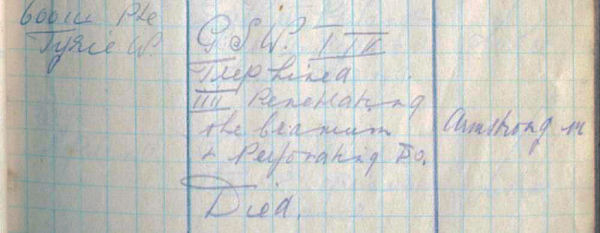 Pte
Tyrie W.
G.S.W.
Trephined
III Penetrating
the Cranium
+ Perforating Do.
Died.
Armstrong